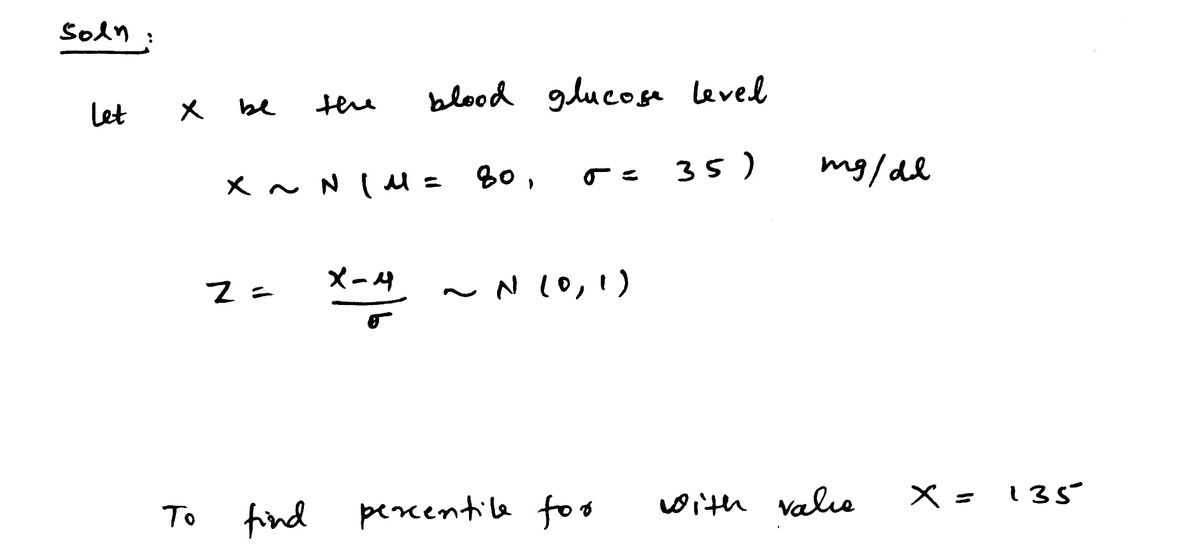 Soln :
Let X be the blood glucose level
X ~ N ( μ = 80, σ = 35 ) mg/dl
Z = X-μ / σ ~ N (0,1)
To find percentile for with value X = 135